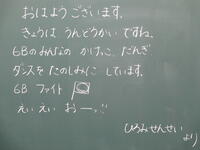 おはようございます。
きょうは うんどうかい ですね。
6Bのみんなの かけっこ、だんぎ
ダンスを たのしみに しています。
6B ファイト
えい えい おーっ!!
ひろみせんせい
より